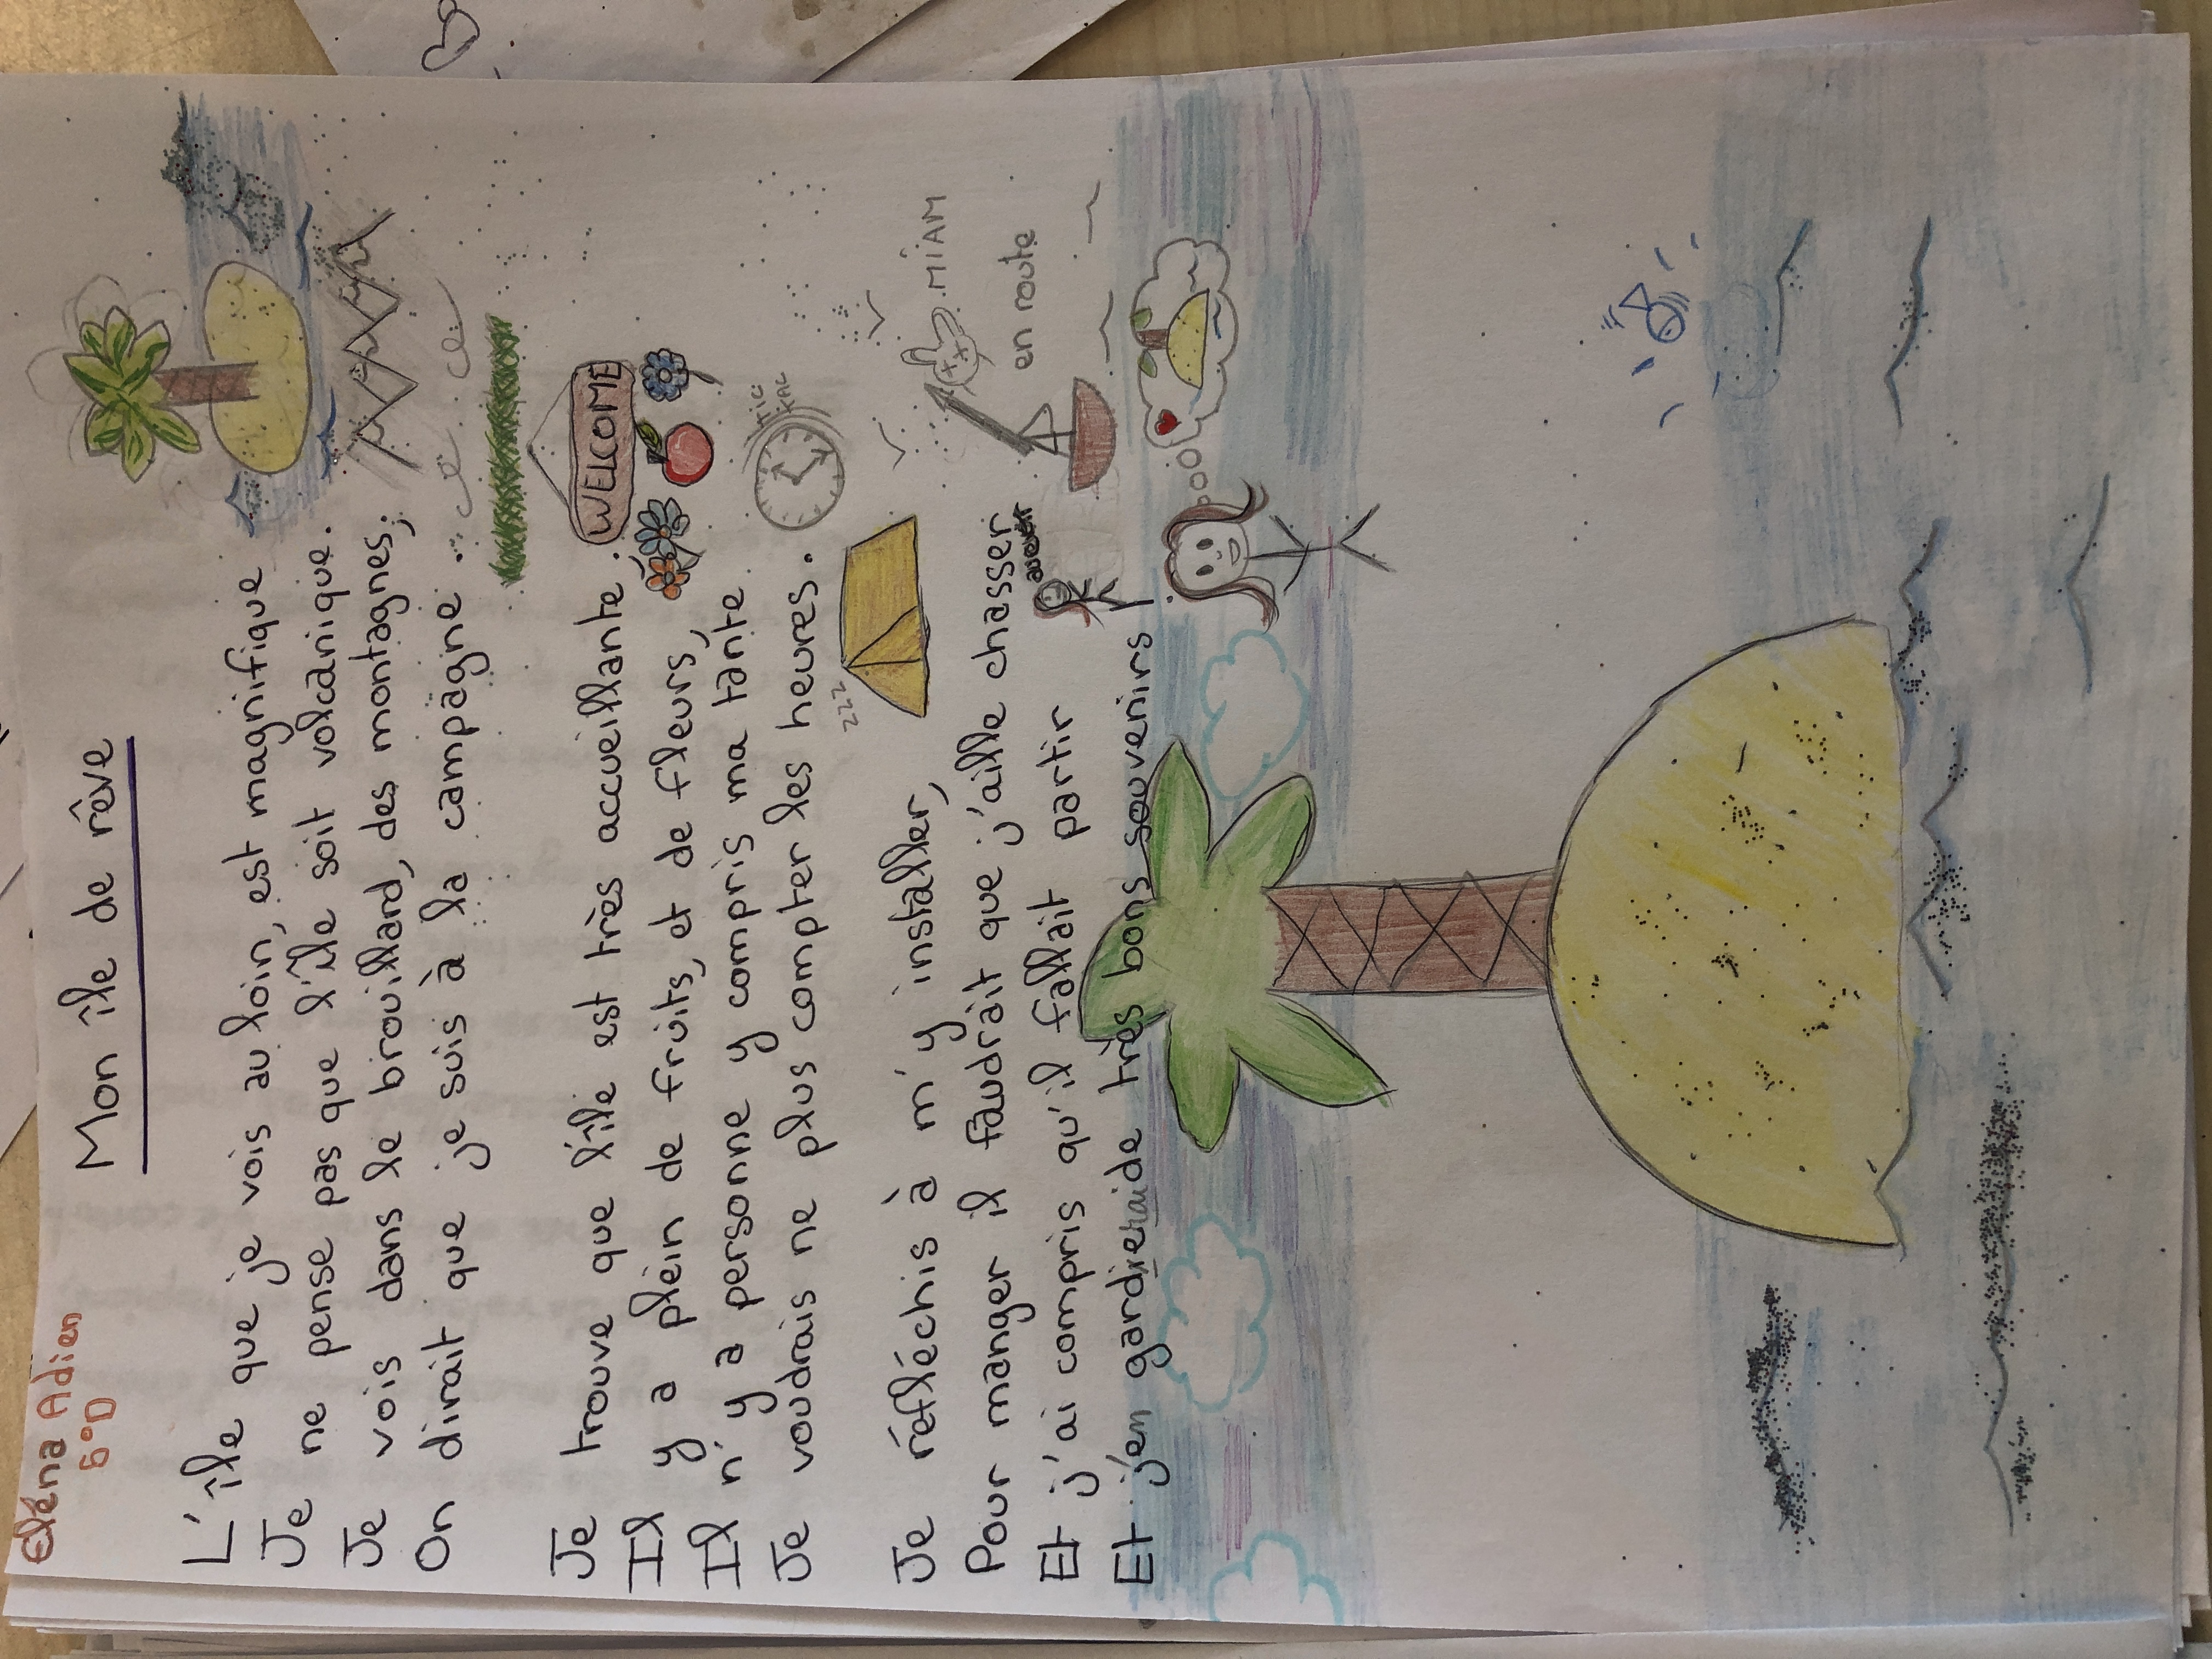 Eléna Adien
6°D
Mon île de rêve
L'île que je vois au loin, est magnifique
Je ne pense pas que l'île soit volcanique.
Je vois dans le brouillard, des montagnes,
On dirait que je suis à la campagne.
Je trouve que l'île est très accueillante.
WELCOME
Il y a plein de fruits, et de fleurs,
Il n'y a personne y compris ma tante
Je voudrais ne plus compter les heures.
TIC
TAC
zzz
Je réfléchis à m'y installer,
Pour manger il faudrait que j'aille chasser
MIAM
Et j'ai compris qu'il fallait partir
en route
Et j'en garderai de très bons souvenirs